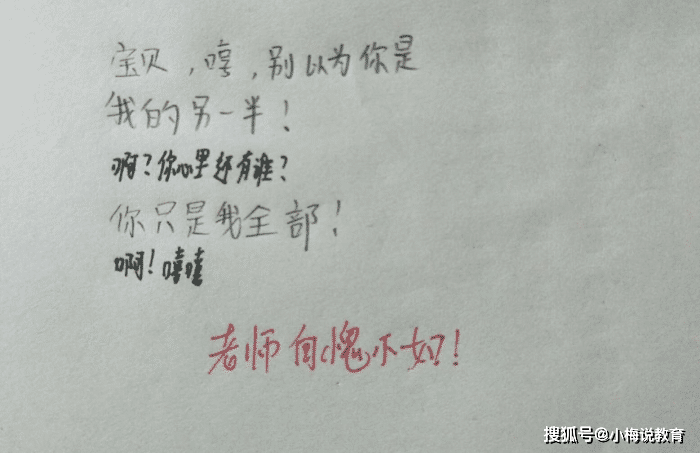 宝贝，哼，别以为你是
我的另一半！
啊？你心里还有谁？
你只是我全部！
啊！嘻嘻
老师自愧不如！
搜狐号@小梅说教育